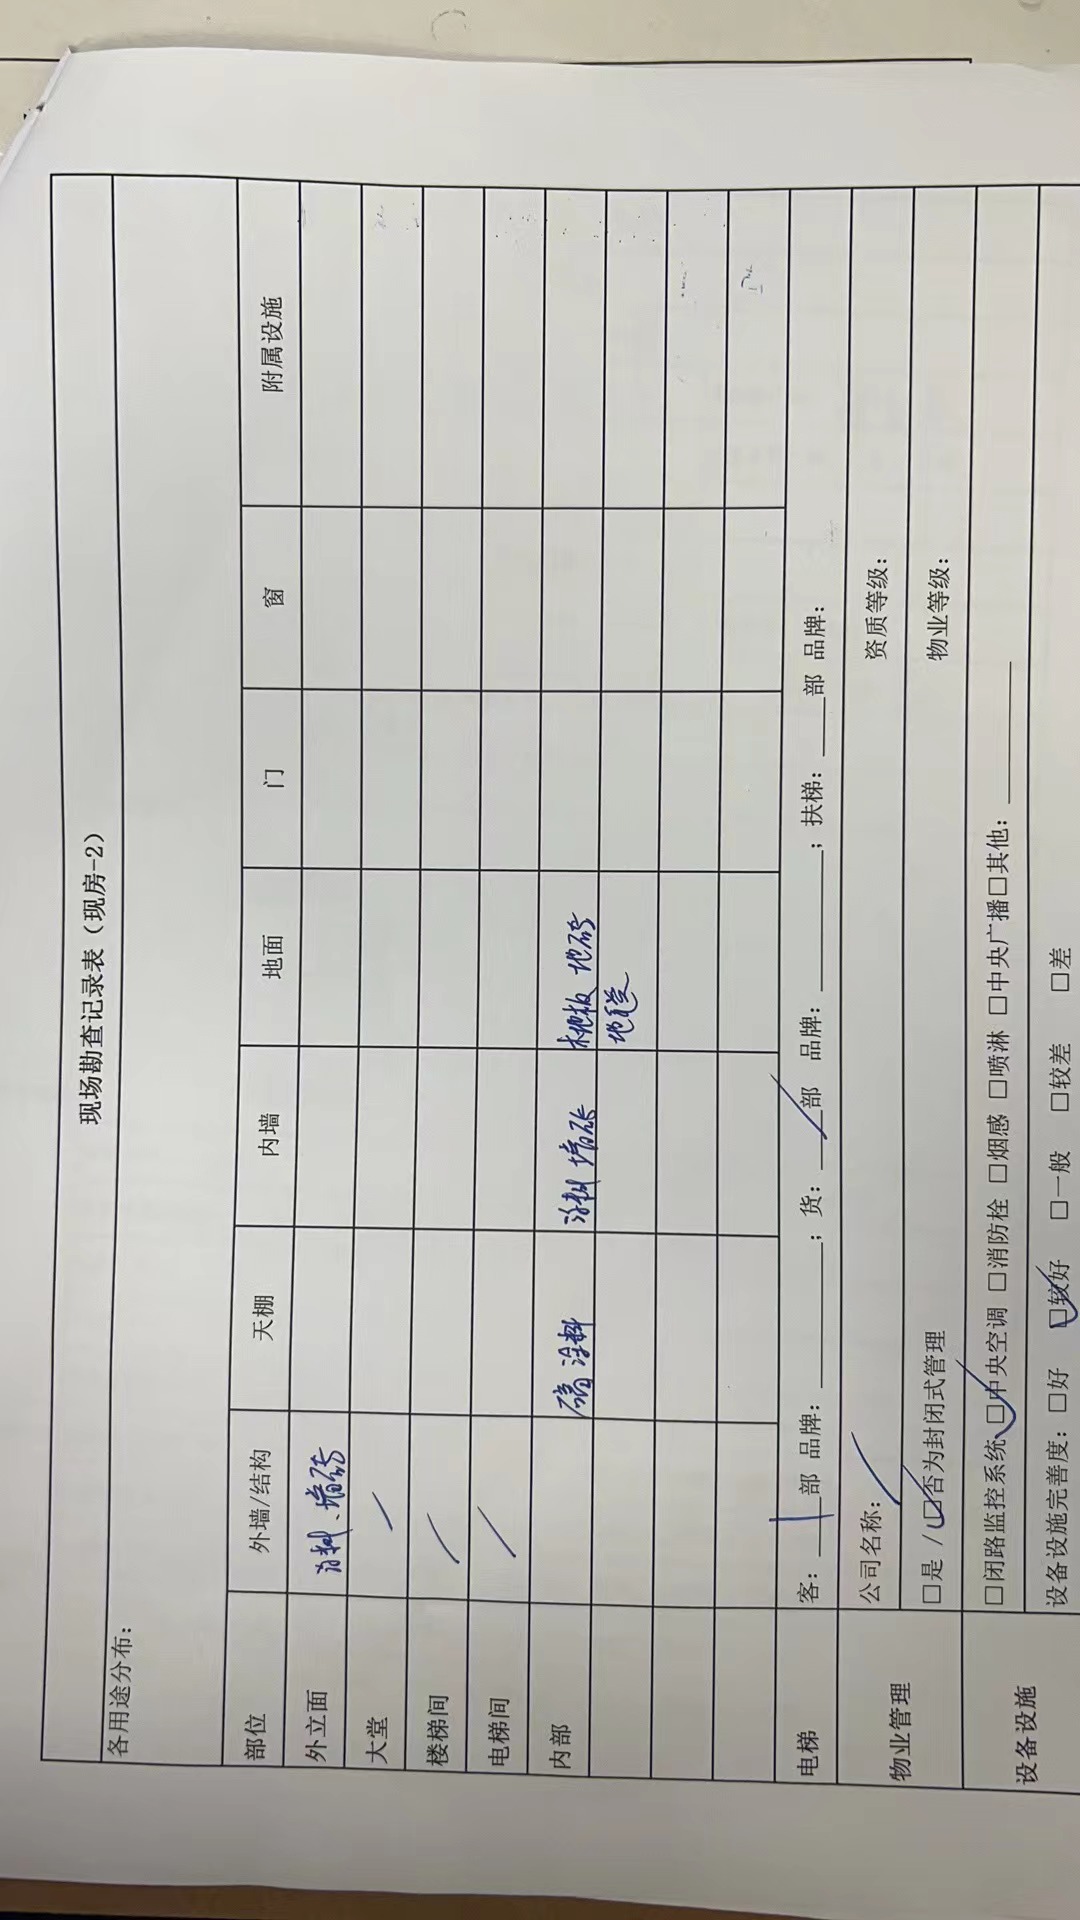 现场勘查记录表（现房-2）
各用途分布：
部位 外墙/结构 天棚 内墙 地面 门 窗 附属设施
外立面 涂料、墙砖
大堂 /
楼梯间 /
电梯间 /
内部 涂料 涂料 墙砖 木地板 地砖
地毯
电梯 客：1部 品牌：________；货：/部 品牌：________；扶梯：____部 品牌：
物业管理 公司名称：/ 资质等级：
□是/☑否为封闭式管理 物业等级：
设备设施 □闭路监控系统 ☑中央空调 □消防栓 □烟感 □喷淋 □中央广播□其他：________
设备设施完善度：□好 ☑较好 □一般 □较差 □差